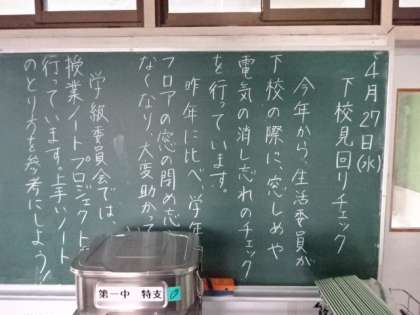 4月27日(水)
下校見回りチェック
今年から、生活委員が
下校の際に、窓しめや
電気の消し忘れのチェック
を行っています。
昨年に比べ、学年
フロアの窓の閉め忘
なくなり、大変助かって
学級委員会では、
授業ノートプロジェクト
行っています。上手いノート
のとり方を参考にしよう!
第一中 特支